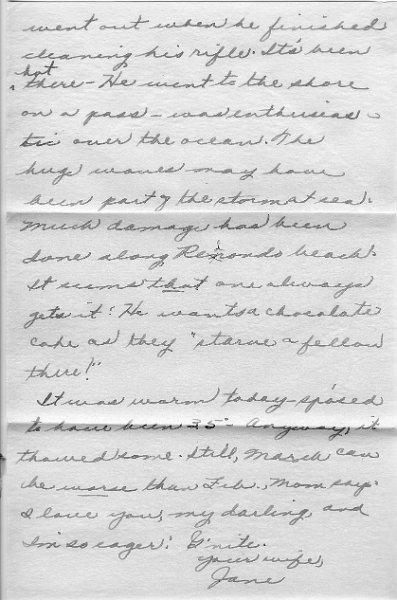 went out when he finished
cleaning his rifle. It's been
hot
there - He went to the shore
on a pass - was enthusias -
tic over the ocean. The
huge waves may have
been part of the storm at sea.
Much damage has been
done along Redondo beach.
It seems that one always
gets it! He wants a chocolate
cake as they "starve a fellow
there!"
It was warm today - sposed
to have been 35° - Anyway, it
thawed some. Still, March can
be worse than Feb., Mom says.
I love you, my darling, and
I'm so eager! G'nite.
your wife,
Jane